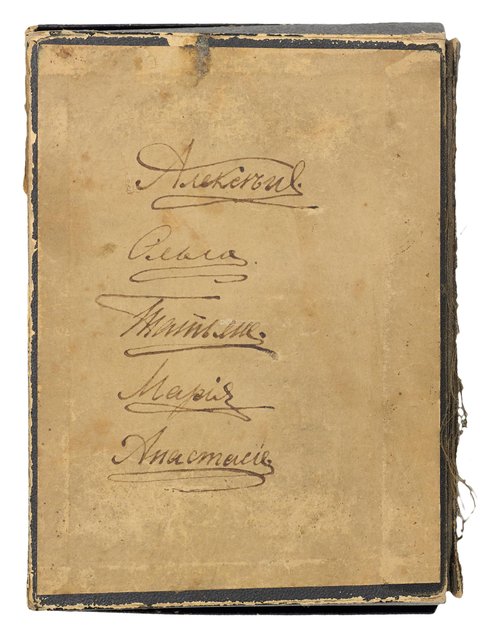 Алексѣй.
Ольга.
Татьяна.
Марія
Анастасія.